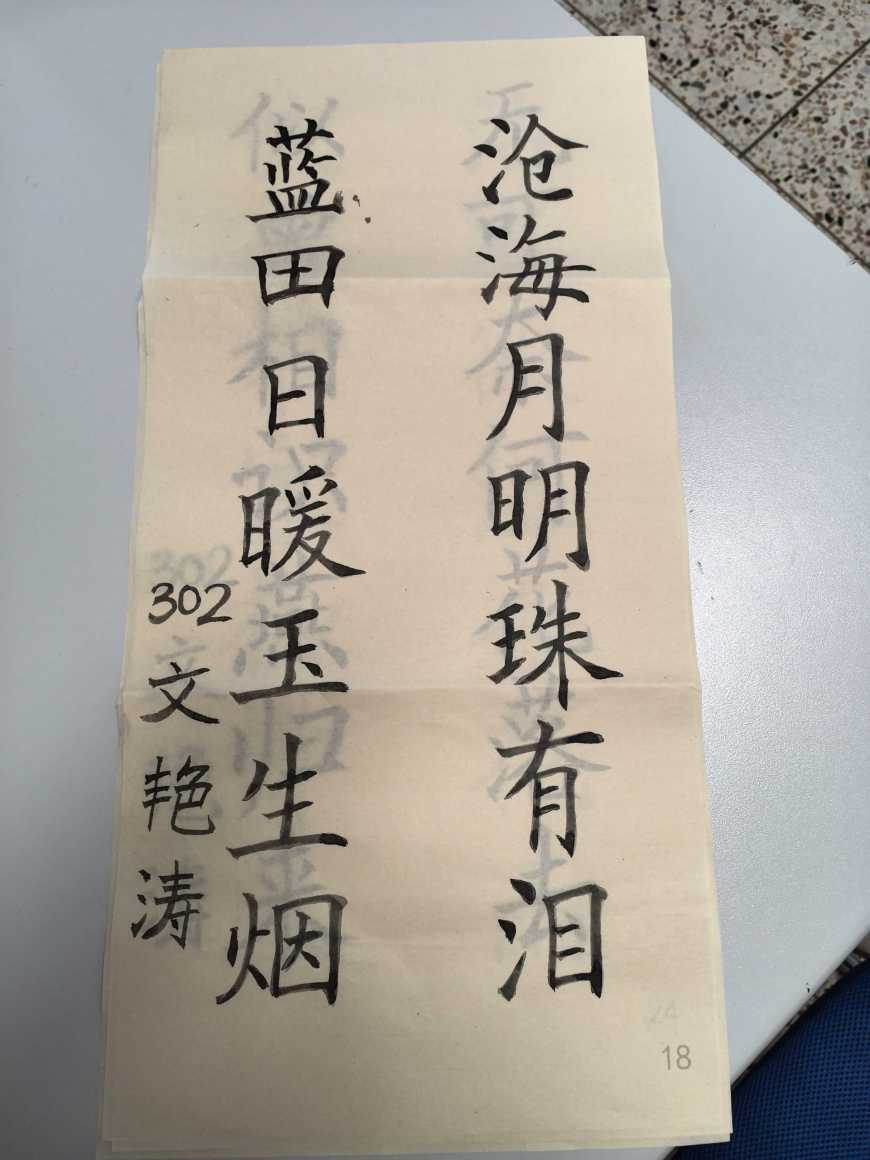 沧海月明珠有泪
蓝田日暖玉生烟
302文艳涛
18